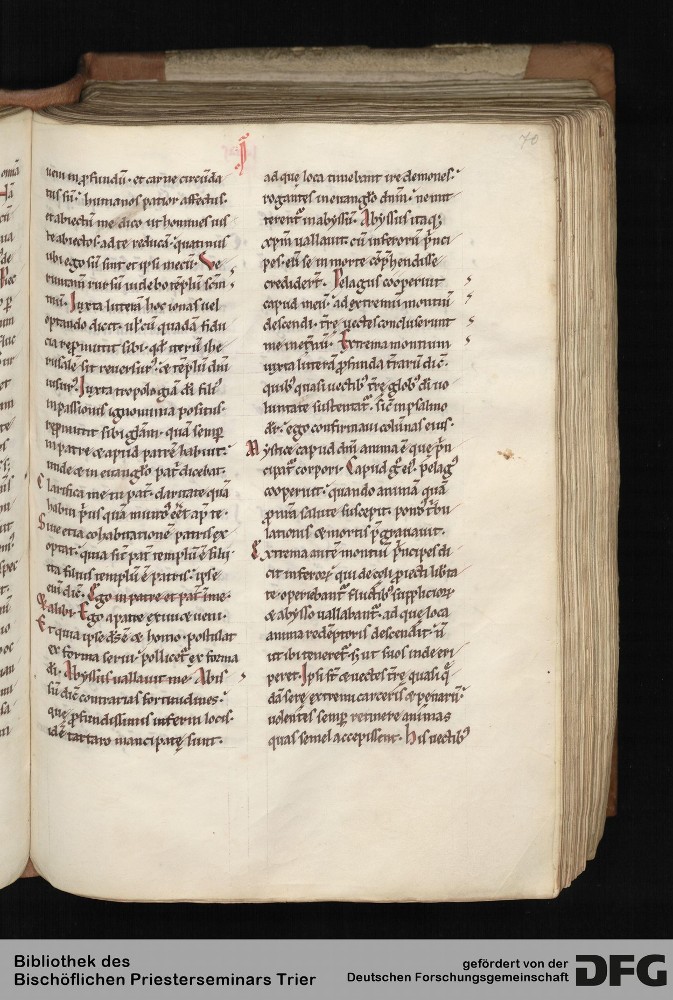 70
I
ueni in ꝓfundū· et carne circūda
tus sū· humanos patior affectus·
et abiectū me dico ut homines tuo
te abiectos ad te reducā· quatinus
ubi ego sū sint et ipsi mecū· Ve
runtam̄ rursū uidebo tēplū scm̄
tuū· Iuxta litterā hoc ionas uel
optando dicit· ul̓ cū quadā fidu
cia repromittit sibi· qđ iterū ihe
rusalē sit reuersur᷒· ⁊ tēplū dn̄i
uisur᷒· Iuxta tropologiā di filius
in passionis ignominia positus·
repmittit sibi glām· quā semꝑ
in patre ⁊ apud patrē habuit·
unde ⁊ in euanglo patri dicebat·
Clarifica me tu pat̄· claritate quā
habui pus quā mund᷒ eēt ap te·
Siue etiā cohabitationē patris ex
optat· quia sic̄ pat̄ templū ē filii·
ita filius templū ē patris· ipse
eni dic̄· Ego in patre et pat̄ in me·
⁊ alibi· Ego a patre exiui ⁊ ueni·
Et quia ipse ds̄ ē ⁊ homo· postulat
ex forma serui· pollicet̄ ex forma
di· Abyssus uallauit me· Abis
sū dic̄ contrarias fortitudines·
quę ꝓfundissimis inferni locis·
id ē tartaro mancipatę sunt·
ad quę loca timebant ire demones·
rogantes in euanglo dn̄m· ne mit
terent̄ in abyssū· Abyssus itaq;
xp̄m uallauit cū inferorū pnci
pes· eū se in morte cōp̄hendisse
credidert̄· Pelagus cooperuit
capud meū· ad extremū montiū
descendi· tr̄ę uectes concluserunt
me in et̄nū· Extrema montium
iuxta litterā ꝓfunda t̄rarū dic̄·
quib᷒ quasi uectibus tr̄ę glob᷒ di uo
luntate sustentat̄· sic̄ in psalmo
dr̄· ego confirmaui colūnas eius·
Mystice capud dn̄i anima ē quę pn
cipat̄ corpori· Capud g̊ ei᷒· pelag᷒
cooperuit· quando animā quā
ꝓ nr̄a salute suscepit· pond᷒ t̄bu
lationis ⁊ mortis pgrauauit·
Extrema autē montiū pncipes di
cit inferoꝝ· qui de celi ꝓiecti lib̄ta
te· operiebant̄ fluctib᷒ suppliciorū
⁊ abysso uallabant̄· ad quę loca
anima redēptoris descendit· n̄
ut ibi teneret̄· s; ut suos inde eri
peret· Ipsi st̄ ⁊ uectes tr̄ę quasi q̄
dā serę extremi carceris ⁊ penarū·
uolentes semꝑ retinere animas
quas semel accepissent· His uectib᷒
Bibliothek des
Bischöflichen Priesterseminars Trier
gefördert von der
Deutschen Forschungsgemeinschaft
DFG